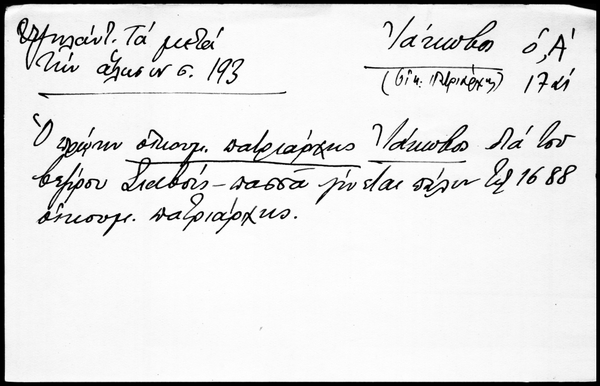 Ὑψηλάντ. Τά μετά
τήν ἅλωσιν σ. 193
Ἰάκωβος ὁ, Α΄
(Οἰκ. Πατριάρχης) 17 αἰ
Ὁ πρώην οἰκουμ. πατριάρχης Ἰάκωβος διά τοῦ
βεζίρου Σιαβούς-πασσᾶ γίνεται πάλιν τῷ 1688
οἰκουμ. πατριάρχης.